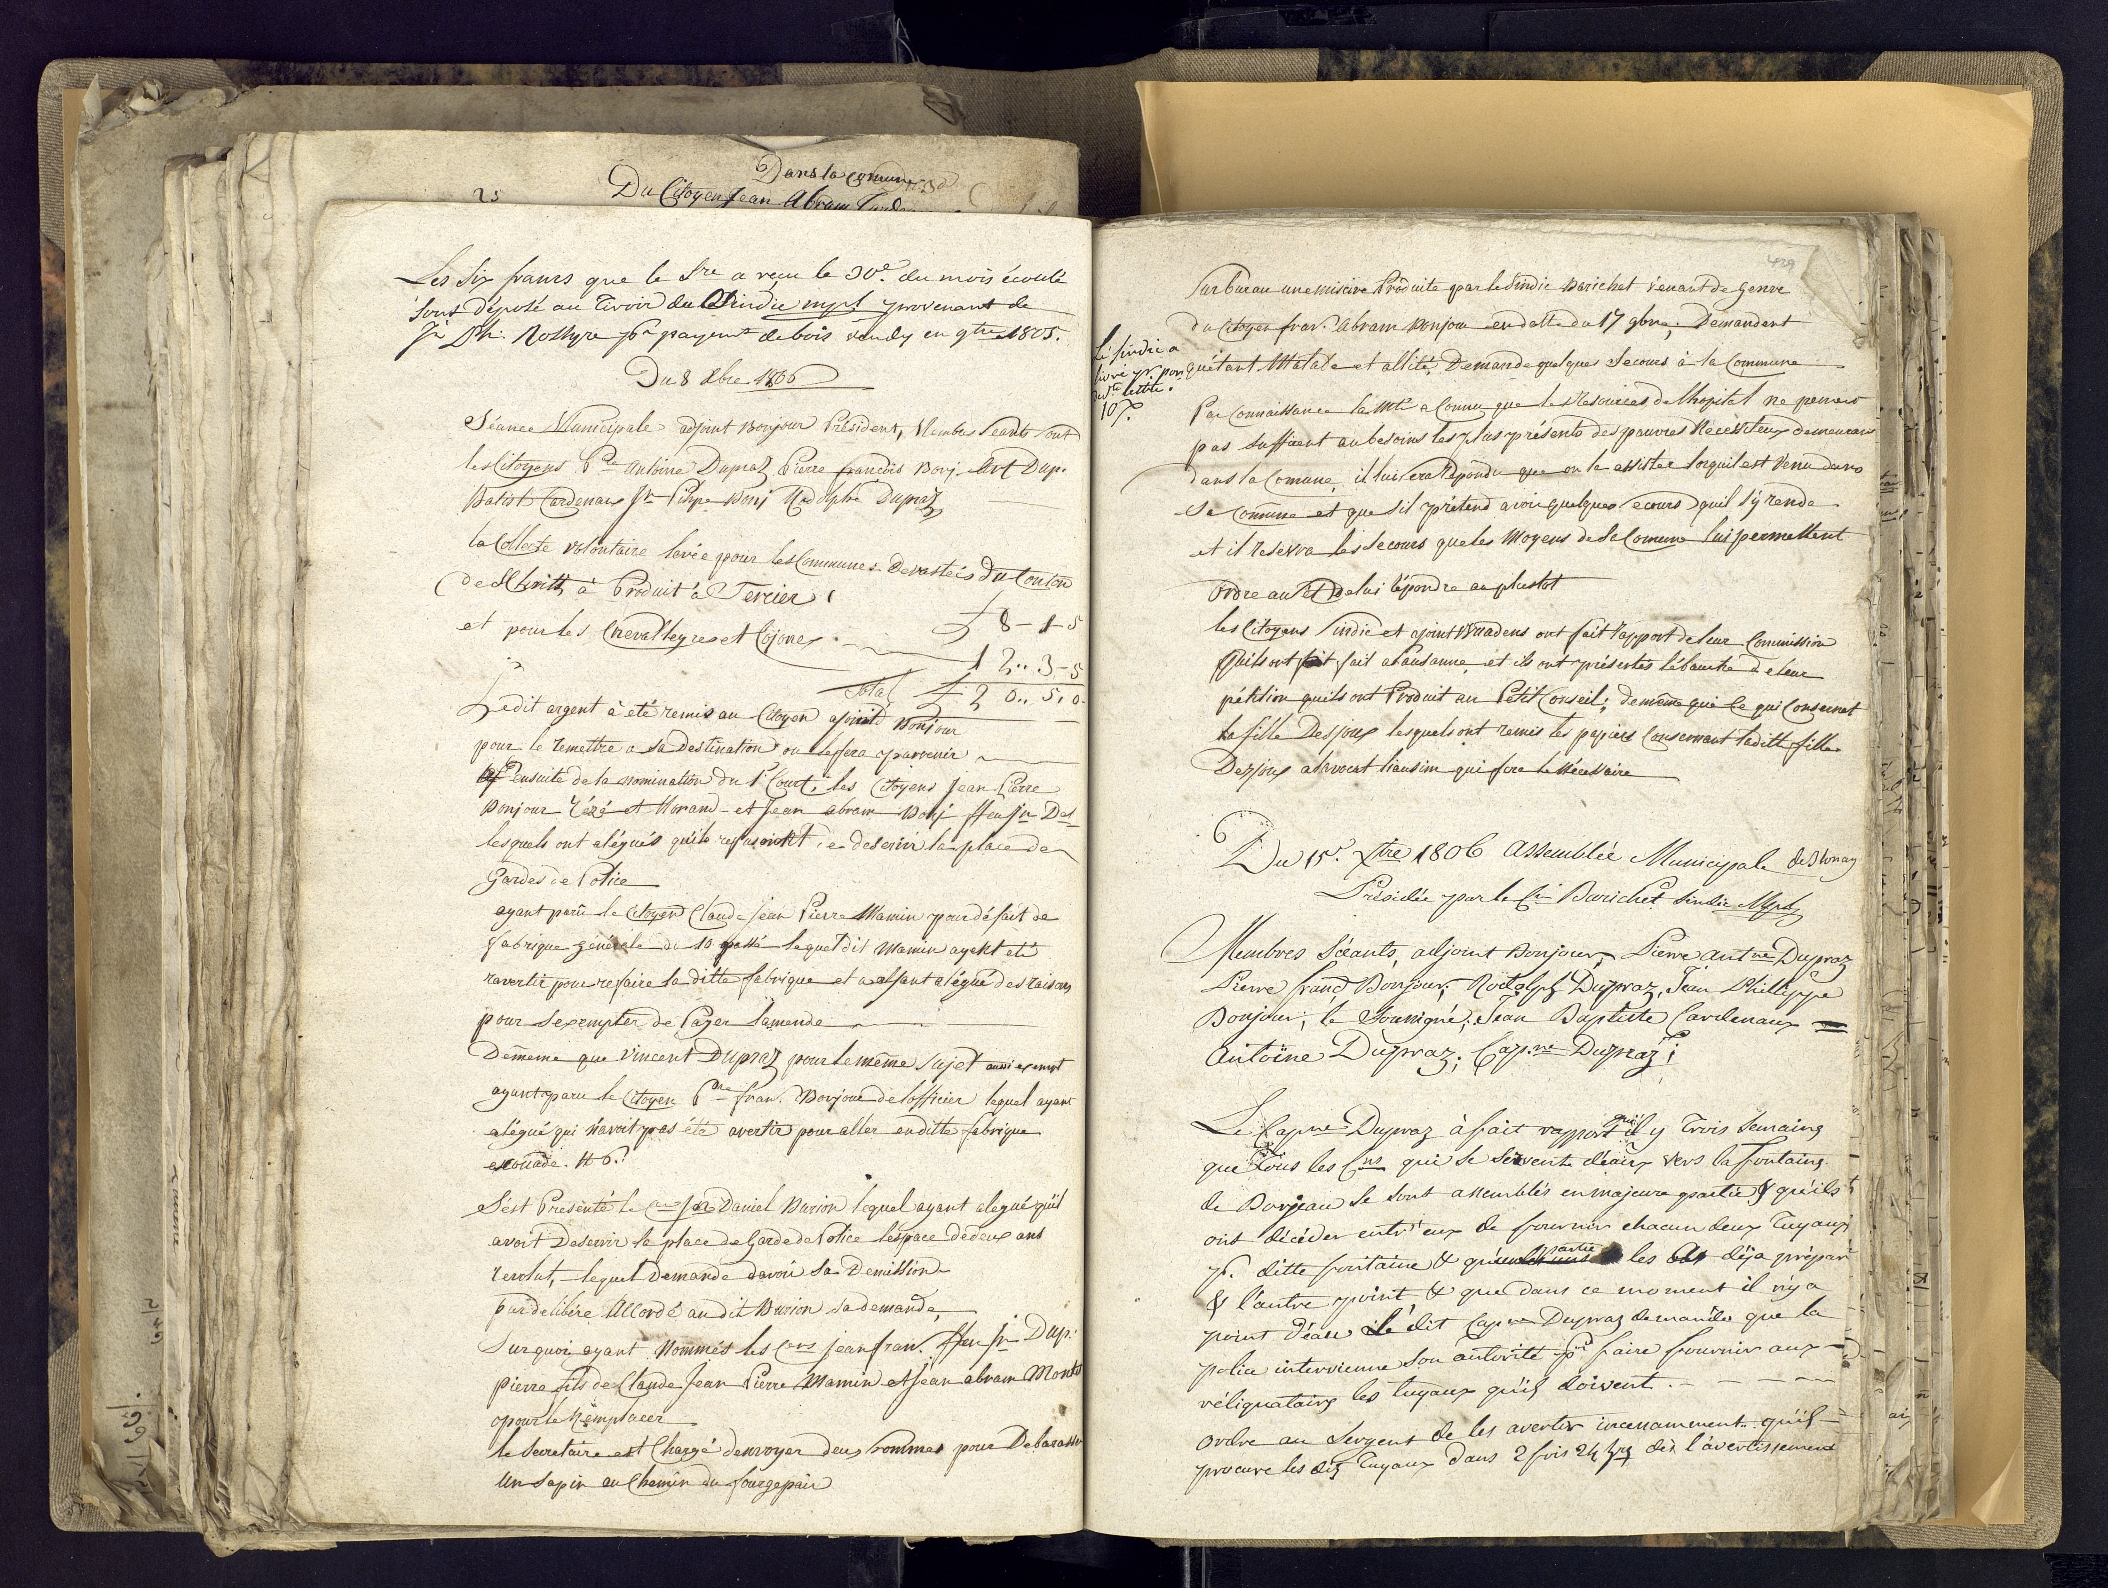 Dans la comune
25
Du Citoyen Jean Abram
Les Six francs que le Sre a reçu le 30e. du mois écoulé
sont déposé au Tiroir du Sindic mpl provenant de
Jn Ph: pr payemt de bois vendu en 9bre 1805.
Du 8 Xbre 1806
Séance Municipale adjoint Bonjour Président, Membres séants sont
les Citoyens Pre Antoine Dupraz Pierre francois Bonj. Ant Dup.
Batist Cardenaux Jn Philipe Bonj Rodolphe Dupraz
la Collecte volontaire levée pour les Communes devastées du Canton
de à Produit à Tercier
L 8-1-5
et pour les Chevalleyres et Cojonex
12..3-5
Total L 20..5.0.
Ledit argent à été remis au Citoyen ajoint Bonjour
pour le remettre a sa Destination ou le fera parvenir
ensuite de la nomination du 1r Court, les Citoyens Jean Pierre
Bonjour et Morand et Jean abram Bonj ffeu Jn Dal
lesquels ont alégués quils refusoient de deservir la place de
Gardes de Police
ayant parû le Citoyen Claude Jean Pierre Mamin pour défait de
fabrique générale du 10 passé lequel dit Mamin ayant été
ravertir pour refaire la ditte fabrique et alégué des raisons
pour Sexempter de Payer lamende
Demême que Vincent Dupraz pour le même Sujet aussi exempt
ayant paru le Citoyen Pre fran. Bonjour de lofficier lequel ayant
alégué qui navoit pas été avertir pour aller en ditte fabrique
escouade. N 6.
Sest Présenté le Daniel Burion lequel ayant alegué quil
avoit Deservir la place de Garde de Police lespace de deux ans
revolut, lequel Demande davoir Sa Demission
par delibéré Accordé au dit Burion sa demande,
Surquoi ayant Nommés les Cens Jean fran. ffeu Jn Dup:
pierre fils de Claude Jean Pierre Mamin et Jean abram Montet
pour le Remplacer
le Secretaire est Chargé denvoyer deux hommes pour Debarasser
un Sapin au Chemin du
429
Sur bureau une missive Produite par le Sindic Barichet venant de Genve
du Citoyen fran. Abram Bonjour en datte du 17 9bre, Demandant
Le Sindic a
livré pr. port
de dte lettre.
10 X.
quétant Malade et allité, Demande quelques Secours à la Commune
Par Connaissance la Mté a Connu que les resources de lhopital ne peuvent
pas suffirent au besoins les plus présents des pauvres Nécésiteux demeurans
dans la Comune, il lui sera Répondu que on le assister lorquil est venu dans
sa Comune et que Sil prétend avoir quelques secours quil S'y rende
et il resevra les Secours que les Moyens de la Comune lui permettent
Ordre au de lui répondre au plustot
les Citoyens Sindic et ajoint ont fait rapport de leur Commission
Quils ont fait a Lausanne et ils ont présentés lébauche de leur
pétition quils ont Produit au Petit Conseil; de même que Ce qui Consernet
la fille Desjoux lesquels ont remis les papiers Consernant laditte fille
Dezjoux a lavocat qui fera le Nécessaire
Du 15e. Xbre 1806 Assemblée Municipale de Blonay
Présidée par le Cn Barichet Sindic Mpl
Membres Séants, adjoint Bonjour, Pierre Antne Dupraz
Pierre Frans Bonjour; Rodolph Dupraz, Jean Philippe
Bonjour; le Soussigné; Jean Baptiste Cardenaux
Antoine Dupraz; Capne Dupraz;
Le Capne Dupraz à fait rapport qu'il y Trois Semaines
que Tous les Cns qui se Servent d'eaux vers la fontaine
de Borjeau se sont assemblés en majeure partie & qu'ils
ont décéder entr'eux de fournir chacun deux Tuyaux
pr. ditte fontaine & qu'une partie les déja préparé
& l'autre point & que dans ce moment il n'y a
point d'eau le dit Capne Dupraz demande que la
police intervienne son autorité pr faire fournir aux
réliquataires les tuyaux qu'ils doivent.
Ordre au Sergent de les avertir incessamment qu'ils
procure les dits Tuyaux dans 2 fois 24 hres dès l'avertissement